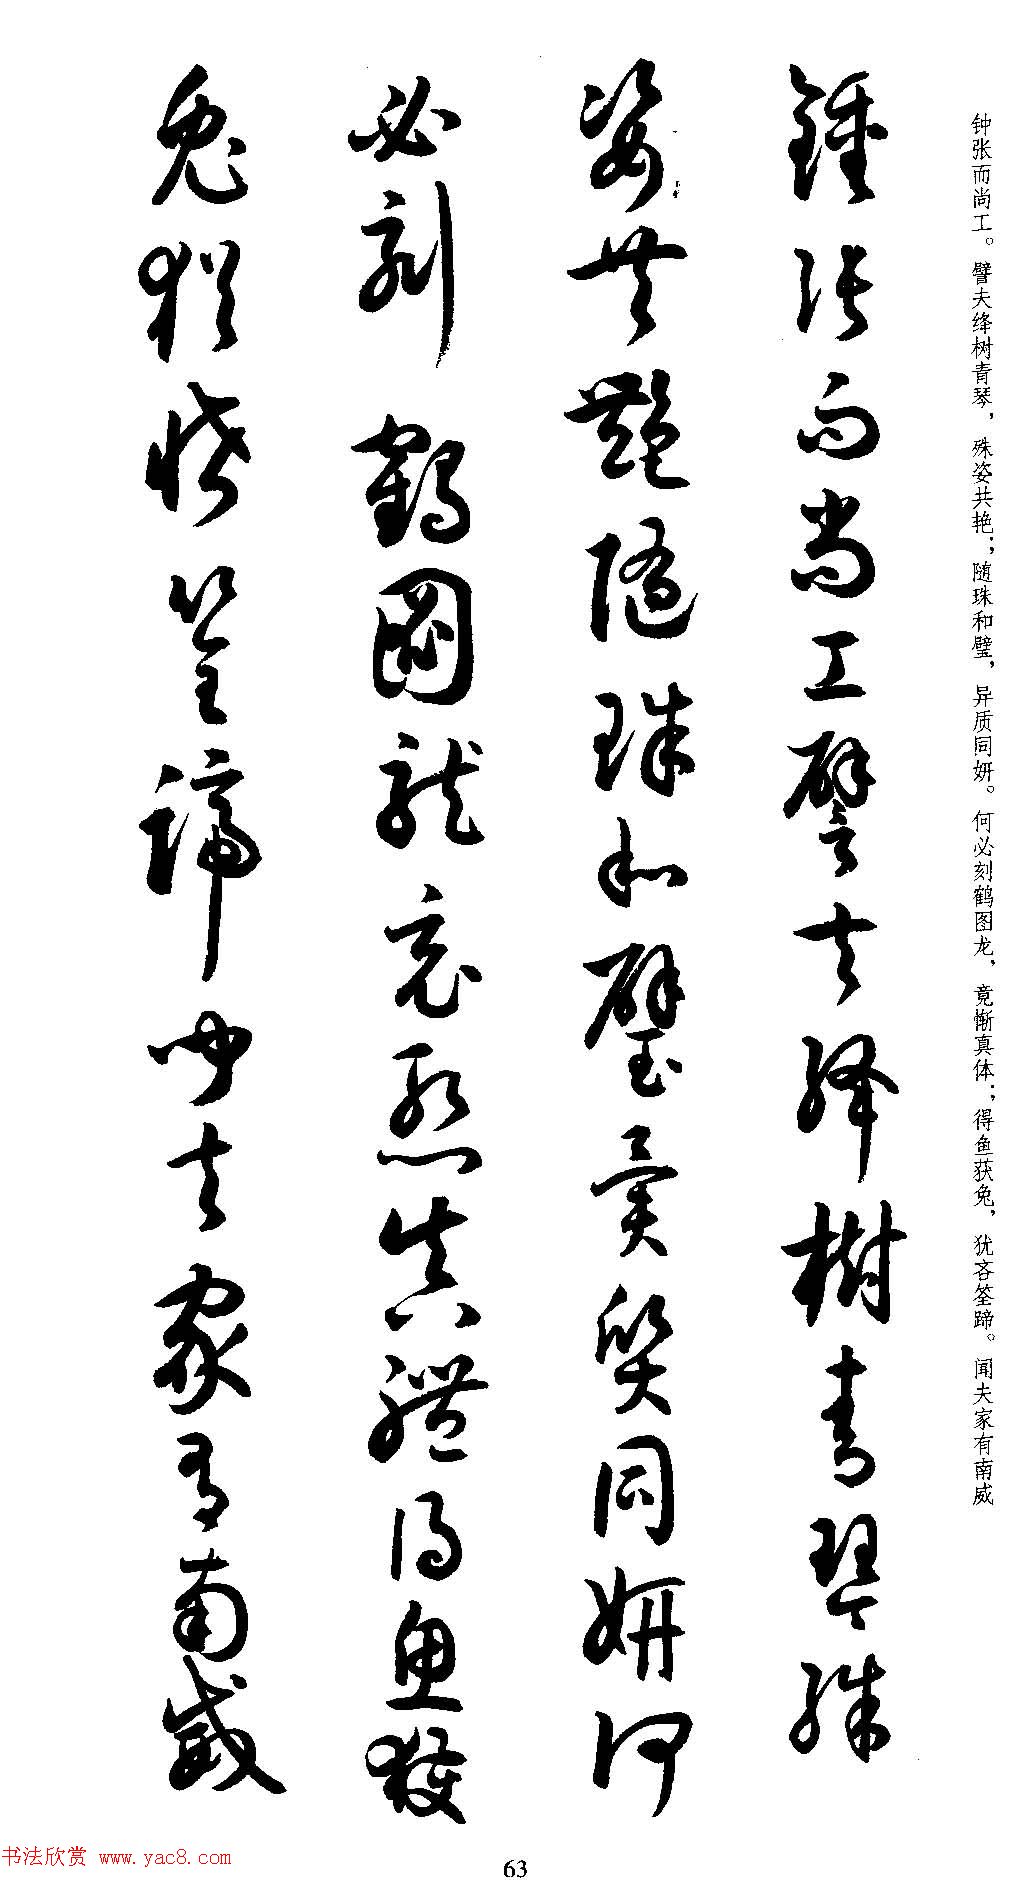 钟张而尚工。譬夫绛树青琴，殊姿共艳；随珠和璧，异质同妍。何必刻鹤图龙，竟惭真体；得鱼获兔，犹吝筌蹄。闻夫家有南威
鍾張而尚工譬夫絳樹青琴殊
姿共艷隨珠和璧異質同妍何
必刻鶴圖龍竟慙真體得魚獲
兔猶恡筌蹄聞夫家有南威
书法欣赏 www.yac8.com
63